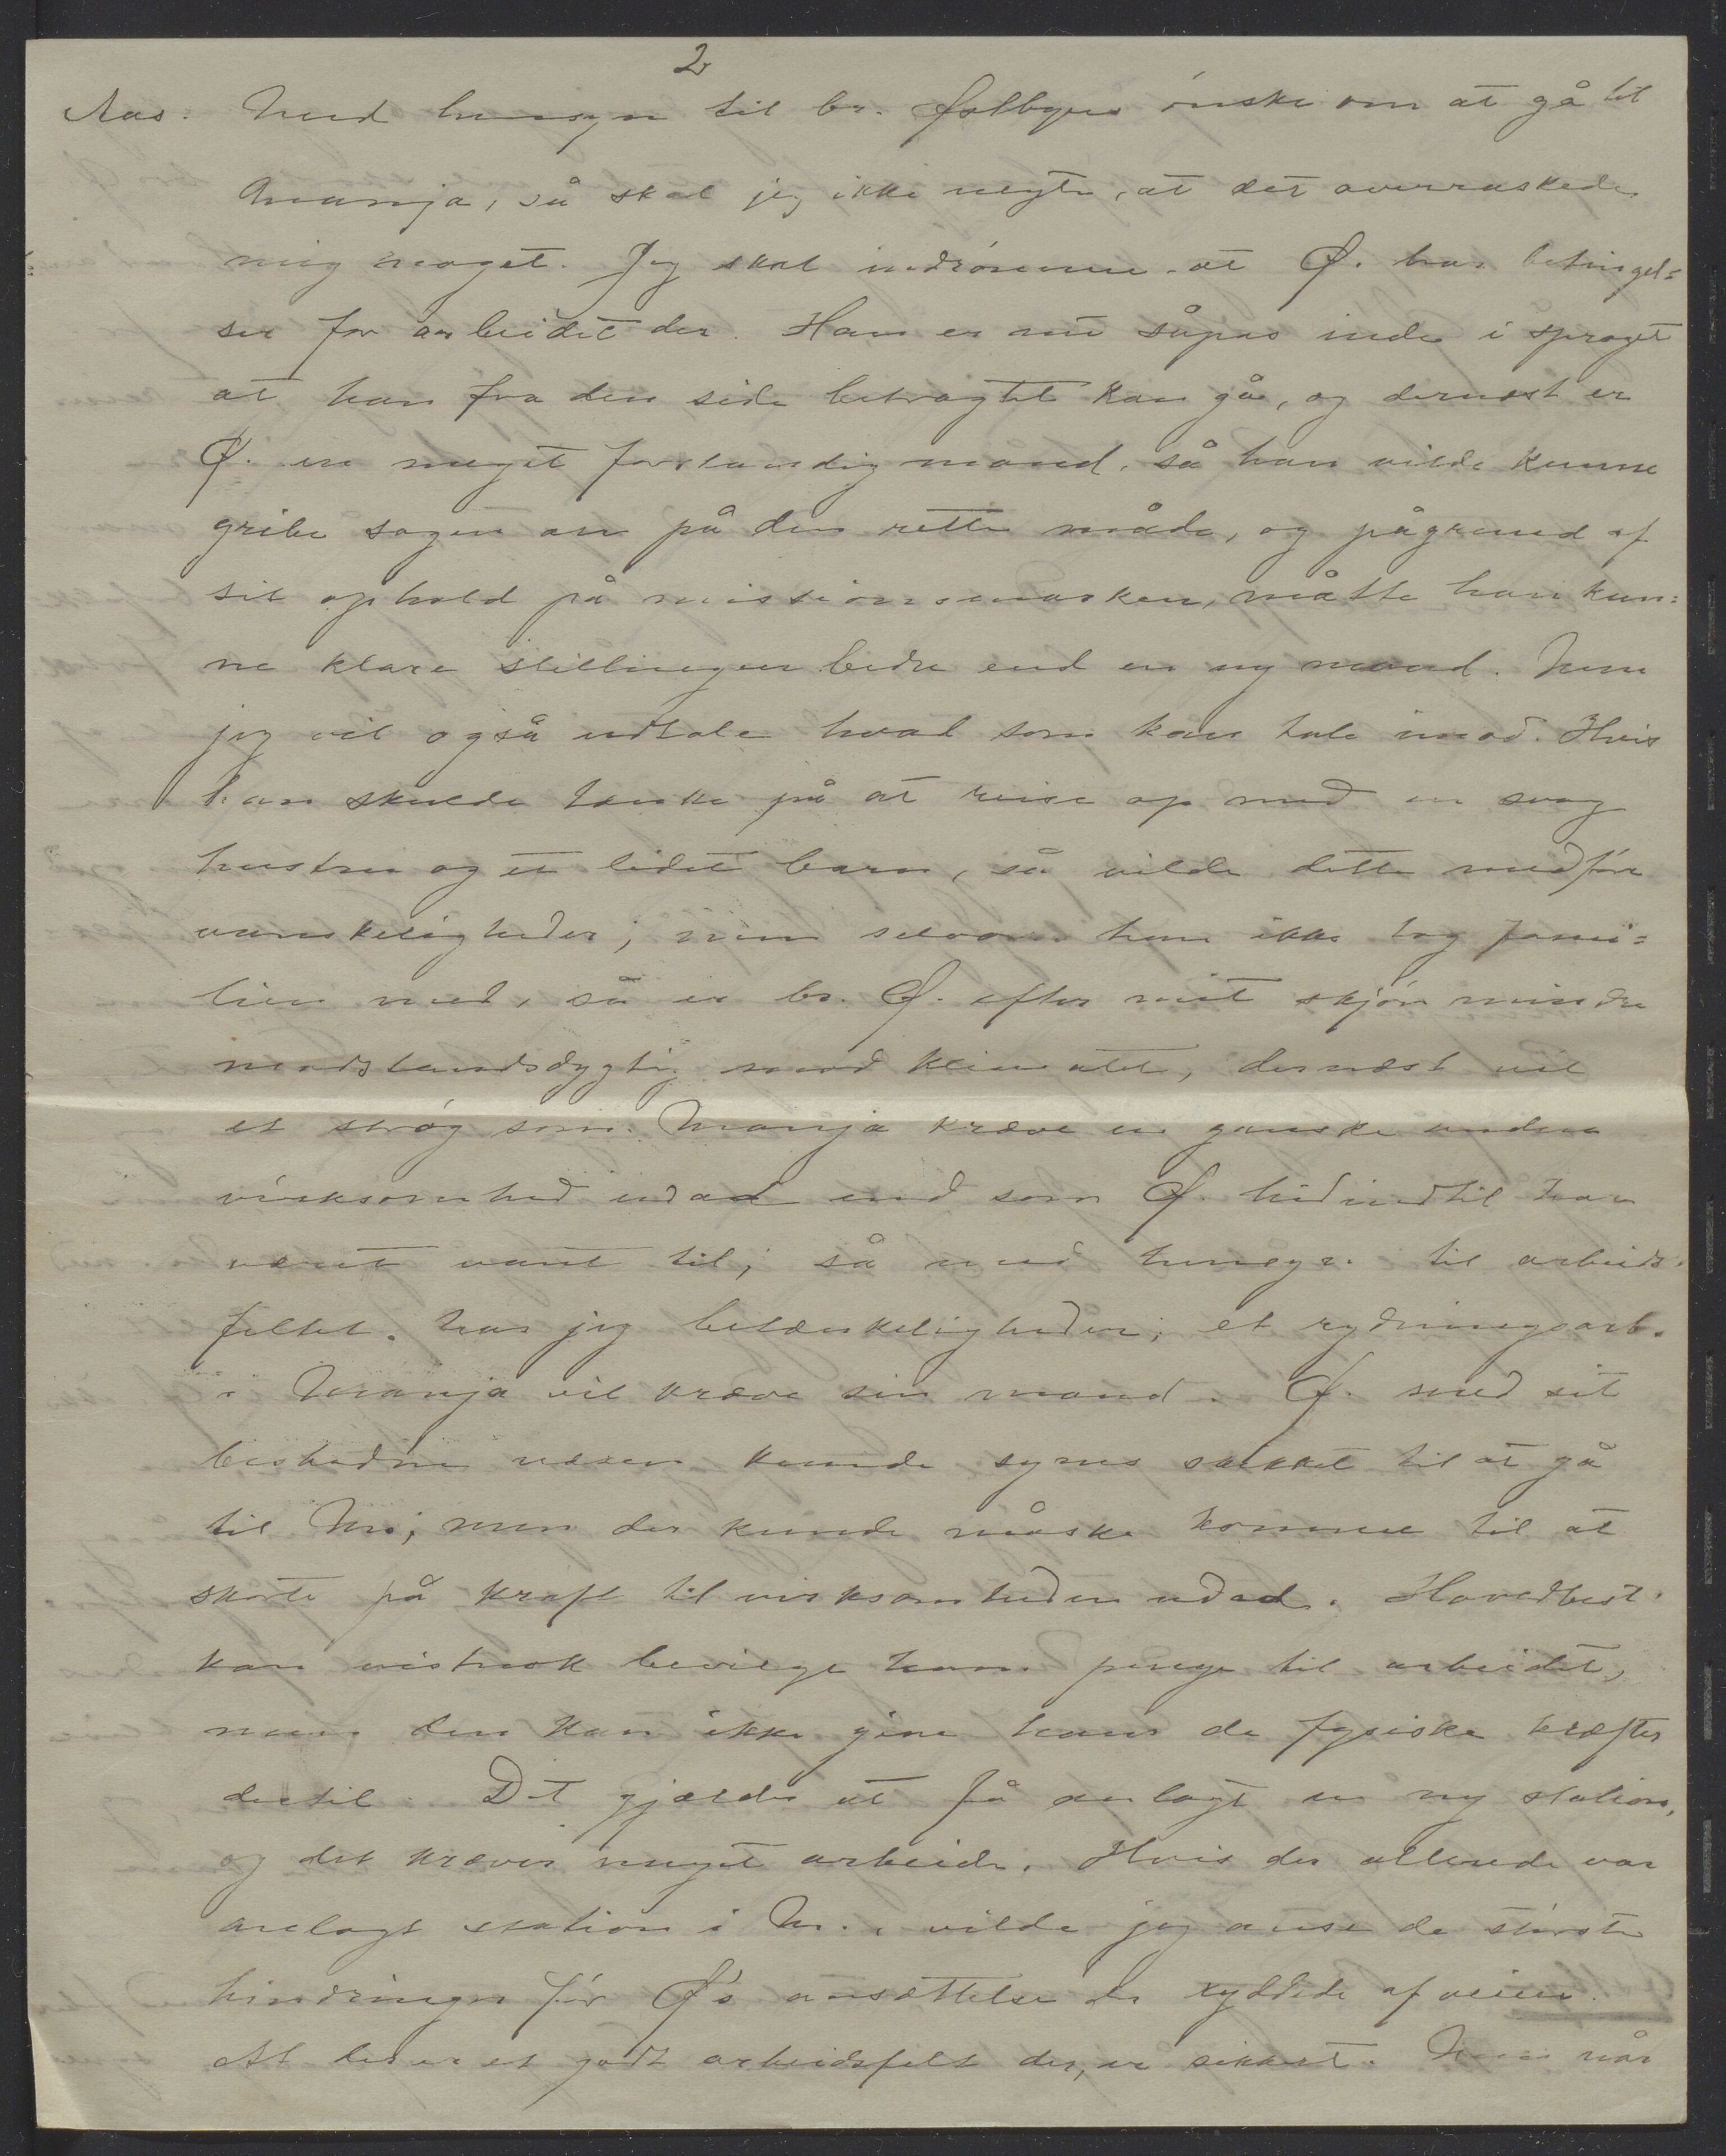 2
Aas. Med hensyn til br. Østbyes ønske om at gå til
Manja, så skal jeg ikke negte, at det overraskede
mig noget. Jeg skal indrømme at Ø. har betingel=
ser for arbeidet der. Han er nu såpas inde i sproget
at han fra den side betragtet kan gå, og dernæst er
Ø. en meget forstandig mand, så han vilde kunne
gribe sagen an på den rette måde, og på grund af
sit ophold på missionsmarken, måtte han kun=
ne klare stillingen bedre end en ny mand. Men
jeg vil også udtale hvad som kan tale imod. Hvis
han skulde tænke på at reise op med en svag
hustru og et lidet barn, så vilde dette medføre
vanskeligheder; men selvom han ikke tog fami=
lien med, så er br. Ø. efter mit skjøn mindre
modstandsdygtig mod klimatet, dernæst vil
et strøg som Manja kræve en ganske anden
virksomhed udad end som Ø. hidindtil har
været vant til; så med hensyn til arbeids=
feltet. har jeg betænkeligheder; et rydningsarb.
i Manja vil kræve sin mand. Ø. med sit
beskedne væsen kunde synes skikket til at gå
til M.; men der kunde måske komme til at
skorte på kraft til virksomheden udad. Hovedbest.
kan vistnok bevilge ham penge til arbeidet,
men den kan ikke give ham de fysiske kræfter
dertil. Det gjælder at få anlagt en ny station,
og det kræver meget arbeide. Hvis der allerede var
anlagt station i M., vilde jeg anse de største
hindringer for Ø's ansættelse der ryddede af veien.
At der er et godt arbeidsfelt der, er sikkert. Men når